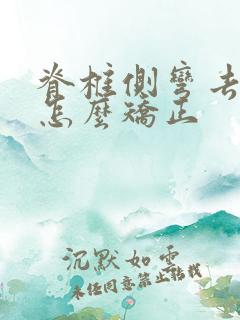 脊柱侧弯去
怎麽矯正
沉默如雲
未经同意禁止转载